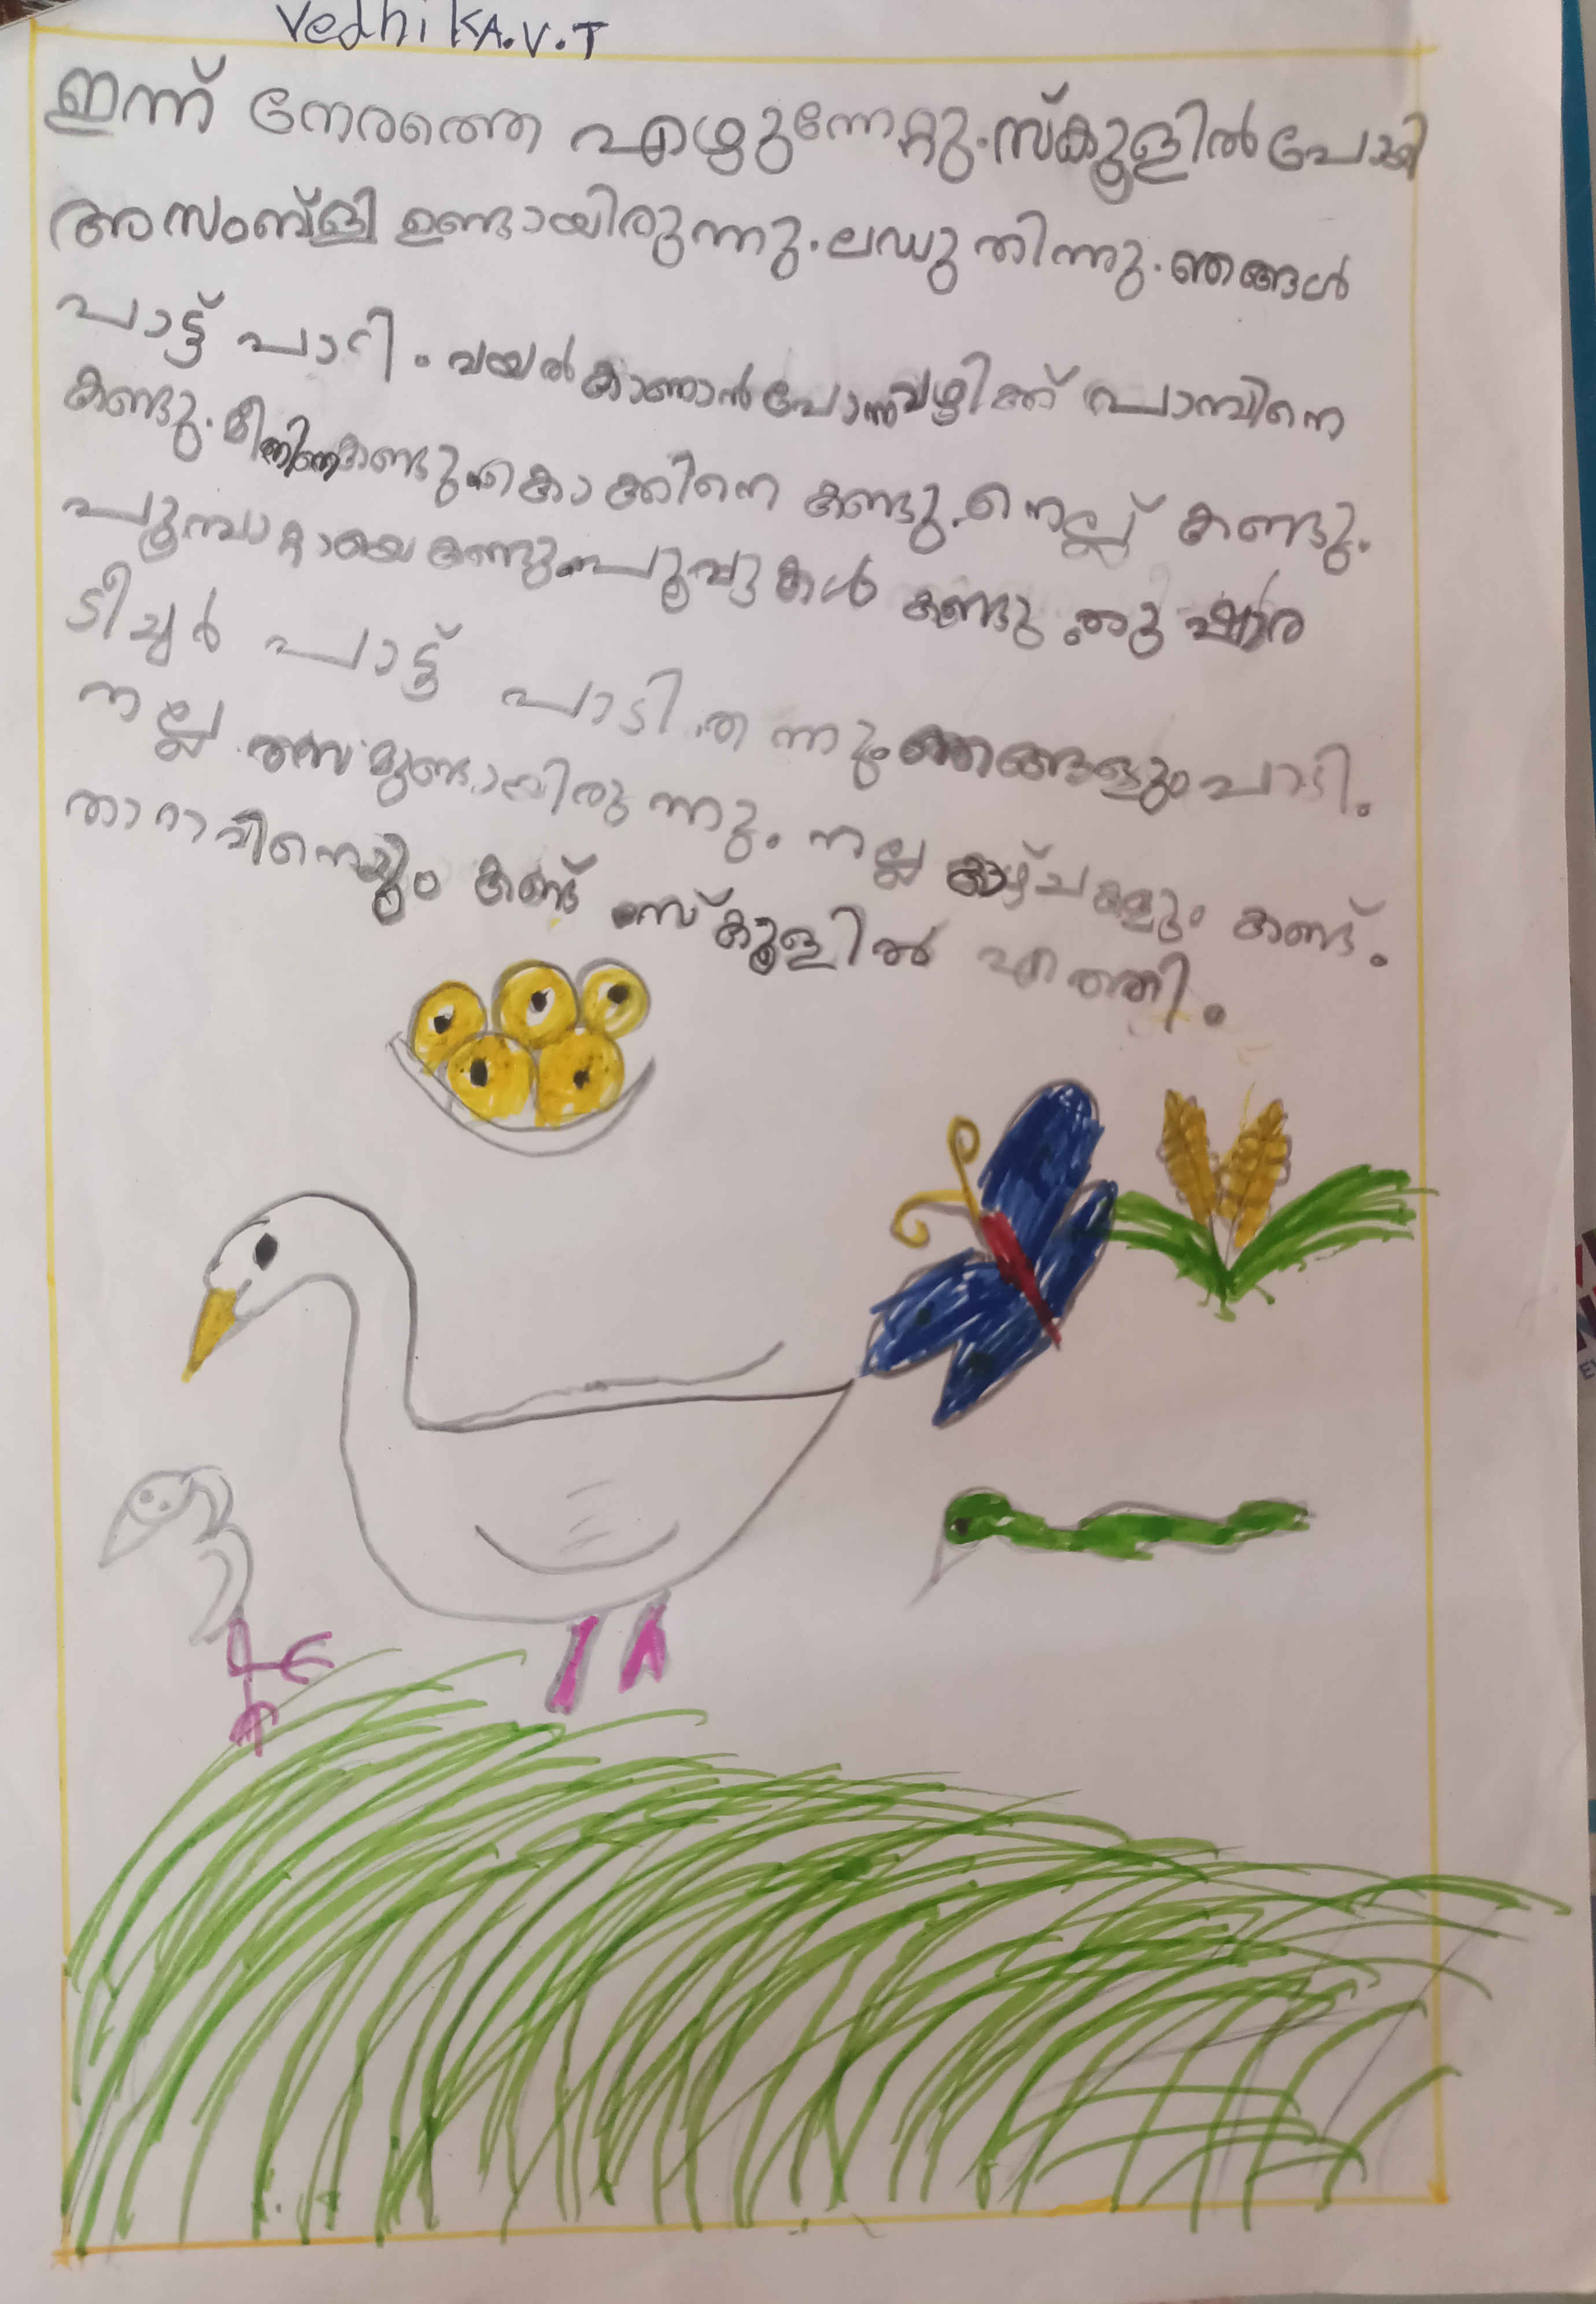 Vedhika.V.T
ഇന്ന് നേരത്തെ എഴുന്നേറ്റു. സ്കൂളിൽ പോയി
അസംബ്ളി ഉണ്ടായിരുന്നു. ലഡു തിന്നു. ഞങ്ങൾ
പാട്ട് പാറി. വയൽ കാണാൻ പോന്ന വഴിക്ക് പാമ്പിനെ
കണ്ടു. മീനിനെ കണ്ടു. കൊക്കിനെ കണ്ടു. നെല്ല് കണ്ടു.
പൂമ്പാറ്റായെ കണ്ടു. പൂവുകൾ കണ്ടു. തുഷാര
ടീച്ചർ പാട്ട് പാടി തന്നു. ഞങ്ങളും പാടി.
നല്ല രസമുണ്ടായിരുന്നു. നല്ല കാഴ്ചകളും കണ്ട്.
താറാവിനെയും കണ്ട് സ്കൂളിൽ എത്തി.